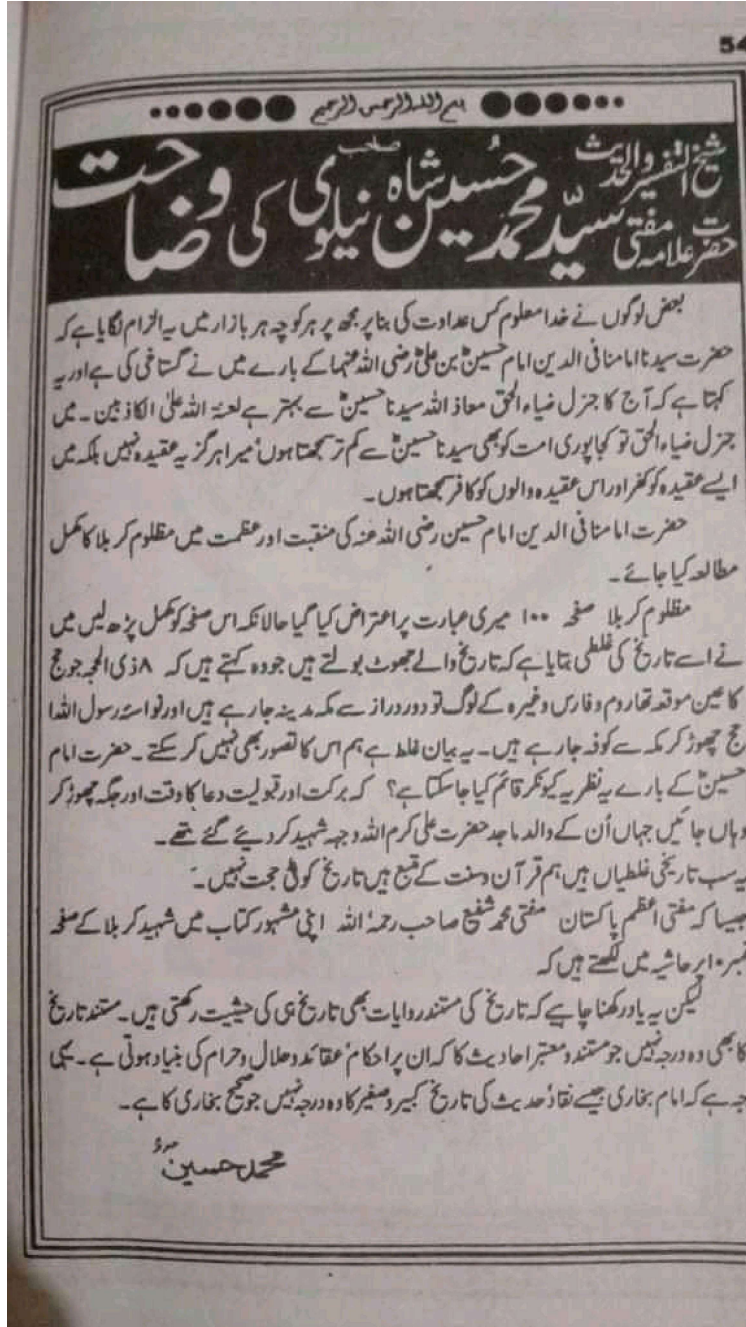 54
بسم اللہ الرحمن الرحیم
شیخ التفسیر والحدیث
حضرت علامہ مفتی سید محمد حسین شاہ صاحب نیلوی کی وضاحت
بعض لوگوں نے خدا معلوم کس عداوت کی بنا پر مجھ پر ہر کوچہ ہر بازار میں یہ الزام لگایا ہے کہ
حضرت سیدنا امامنا فی الدین امام حسینؓ بن علیؓ رضی اللہ عنہما کے بارے میں نے گستاخی کی ہے اور یہ
کہتا ہے کہ آج کا جنرل ضیاء الحق معاذ اللہ سیدنا حسینؓ سے بہتر ہے لعنۃ اللہ علی الکاذبین۔ میں
جنرل ضیاء الحق تو کجا پوری امت کو بھی سیدنا حسینؓ سے کم تر سمجھتا ہوں، میرا ہرگز یہ عقیدہ نہیں بلکہ میں
ایسے عقیدہ کو کفر اور اس عقیدہ والوں کو کافر سمجھتا ہوں۔
حضرت امامنا فی الدین امام حسین رضی اللہ عنہ کی منقبت اور عظمت میں مظلوم کربلا کا مکمل
مطالعہ کیا جائے۔
مظلوم کربلا صفحہ ۱۰۰ میری عبارت پر اعتراض کیا گیا حالانکہ اس صفحہ کو مکمل پڑھ لیں میں
نے اسے تاریخ کی غلطی بتایا ہے کہ تاریخ والے جھوٹ بولتے ہیں جو وہ کہتے ہیں کہ ۸ ذی الحجہ جو حج
کا عین موقعہ تھا روم و فارس وغیرہ کے لوگ تو دور دراز سے مکہ مدینہ جا رہے ہیں اور نواسۂ رسول اللہ
حج چھوڑ کر مکہ سے کوفہ جا رہے ہیں۔ یہ بیان غلط ہے ہم اس کا تصور بھی نہیں کر سکتے۔ حضرت امام
حسینؓ کے بارے یہ نظریہ کیونکر قائم کیا جا سکتا ہے؟ کہ برکت اور قبولیت دعا کا وقت اور جگہ چھوڑ کر
وہاں جائیں جہاں اُن کے والد ماجد حضرت علی کرم اللہ وجہہ شہید کر دیئے گئے تھے۔
یہ سب تاریخی غلطیاں ہیں ہم قرآن و سنت کے متبع ہیں تاریخ کوئی حجت نہیں۔
جیسا کہ مفتی اعظم پاکستان مفتی محمد شفیع صاحب رحمۃ اللہ اپنی مشہور کتاب میں شہید کربلا کے صفحہ
نمبر ۱۰ پر حاشیہ میں لکھتے ہیں کہ
لیکن یہ یاد رکھنا چاہیے کہ تاریخ کی مستند روایات بھی تاریخ ہی کی حیثیت رکھتی ہیں۔ مستند تاریخ
کا بھی وہ درجہ نہیں جو مستند و معتبر احادیث کا کہ ان پر احکام، عقائد و حلال و حرام کی بنیاد ہوتی ہے۔ یہی
جہ ہے کہ امام بخاری جیسے نقاد حدیث کی تاریخ کبیر و صغیر کا وہ درجہ نہیں جو صحیح بخاری کا ہے۔
محمد حسین